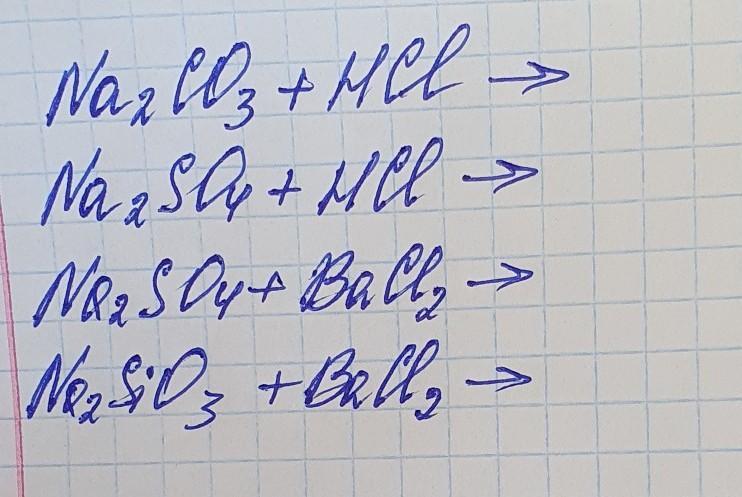 Na₂CO₃ + HCl →
Na₂SO₄ + HCl →
Na₂SO₄ + BaCl₂ →
Na₂SiO₃ + BaCl₂ →